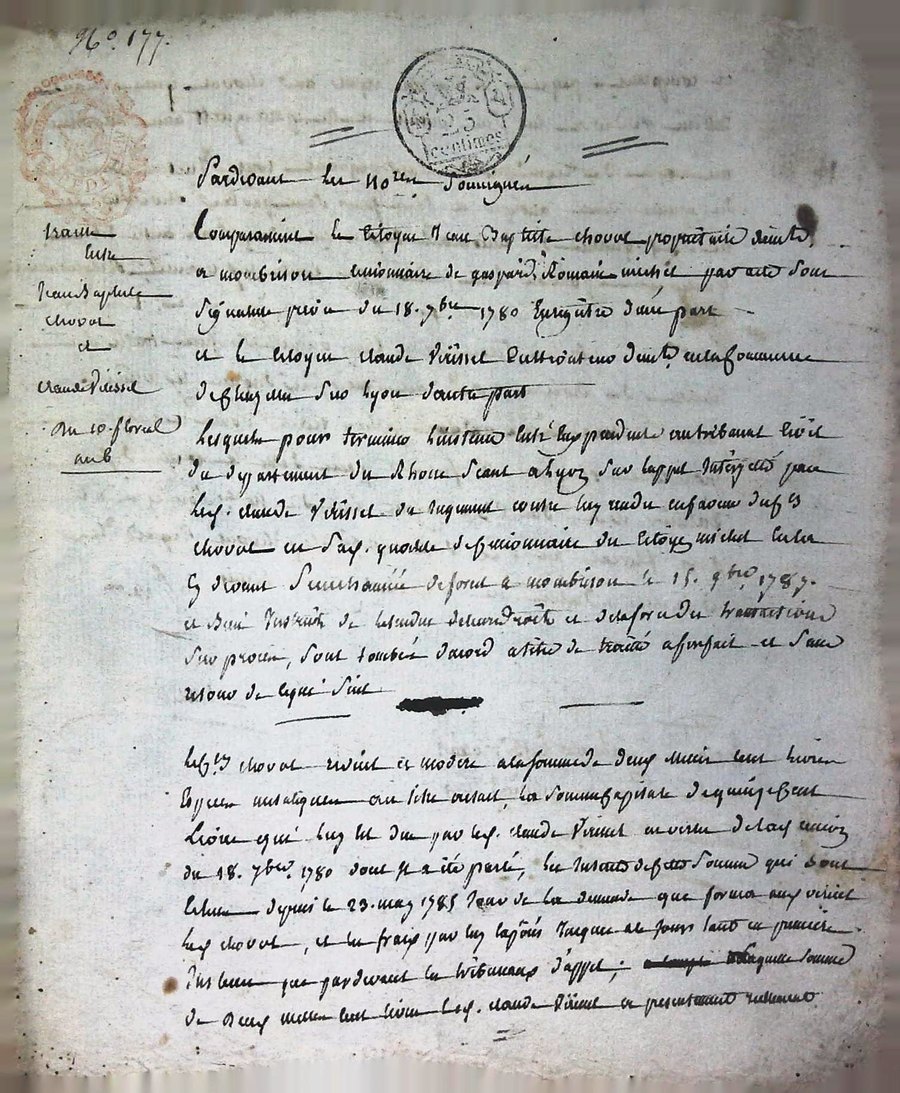 No. 177.
25
centimes
Pardevant les nores. Soussignés
traité
entre
Jean Baptiste
chovot
et
claude Virissel
du 10. floreal
an 6
Comparaissent le Citoyen Jean Baptiste chovot propriétaire demt.
a monbrison cessionnaire de gaspard, Romain michel par acte sous
Signature privée du 18. 7bre 1780 Enregistré d'une part
et le Citoyen claude Virissel demt. en la Commune
Sur lyon d'autre part
Lesquels pour terminer l'instance Entr'Eux pendante au tribunal Civil
du departement du Rhone Seant a lyon Sur l'appel Interjetté par
led. claude Virissel du Jugement contre luy rendu en faveur dud.
chovot en Sad. qualité de Cessionnaire du Citoyen michel En la
Cy devant Senechaussée de forest a monbrison le 15. 9bre 1787.
et Bien Instruits de l'etendue de leurs droits et de la force des transactions
Sur procès, Sont tombés d'acord a titre de traité a forfait et Sans
retour de Ce qui Suit
Led. chovot reduit et modere a la somme de deux mille Cent Livres
Especes metaliques la Somme Capitale de quinze Cent
Livres qui luy Est due par led. claude Virissel en vertu de la cession
du 18. 7bre. 1780 dont Il a été parlé, les Interets de cette Somme qui Sont
depuis le 23. may 1785 Jour de la demande que forma aud. virissel
led. chovot, et les frais par luy Exposés Jusques a ce Jour tant en premiere
Instance que pardevant les tribunaux d'appel; laquelle Somme
de Deux mille Cent livres led. claude Virissel a presentement reellement